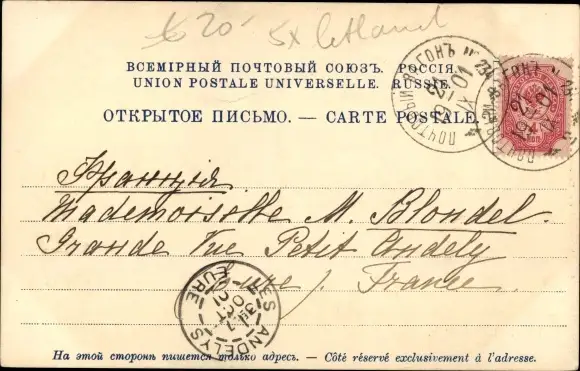 20 5x Letland
ВСЕМІРНЫЙ ПОЧТОВЫЙ СОЮЗЪ. РОССІЯ.
UNION POSTALE UNIVERSELLE. RUSSIE.
ОТКРЫТОЕ ПИСЬМО. — CARTE POSTALE.
ПОЧТОВЫЙ ВАГОНЪ 21 IX 1901
Франція
Mademoiselle M. Blondel.
Grande Rue Petit Andely
Eure). France.
LES ANDELYS EURE OCT 01
На этой сторонѣ пишется только адресъ. — Côté réservé exclusivement à l'adresse.